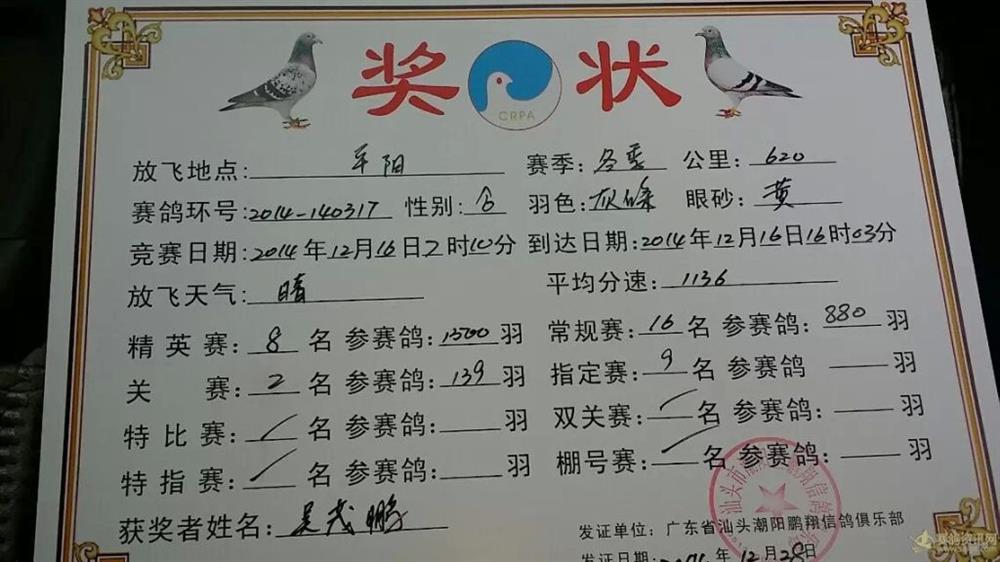 奖 状
CRPA
放飞地点: 阳 赛季: 冬季 公里: 620
赛鸽环号: 2014-140317 性别: 羽色: 灰 眼砂: 黄
竞赛日期: 2014年12月16日7时10分 到达日期: 2014年12月16日16时03分
放飞天气: 晴 平均分速: 1136
精英赛: 8 名 参赛鸽: 1500 羽 常规赛: 16 名 参赛鸽: 880 羽
关 赛: 2 名 参赛鸽: 139 羽 指定赛: 9 名 参赛鸽 羽
特比赛: 名 参赛鸽: 羽 双关赛: 名 参赛鸽: 羽
特指赛: 名 参赛鸽: 羽 棚号赛: 名 参赛鸽: 羽
获奖者姓名: 吴茂鹏
发证单位: 广东省汕头潮阳鹏翔信鸽俱乐部
发证日期: 2014年12月28日